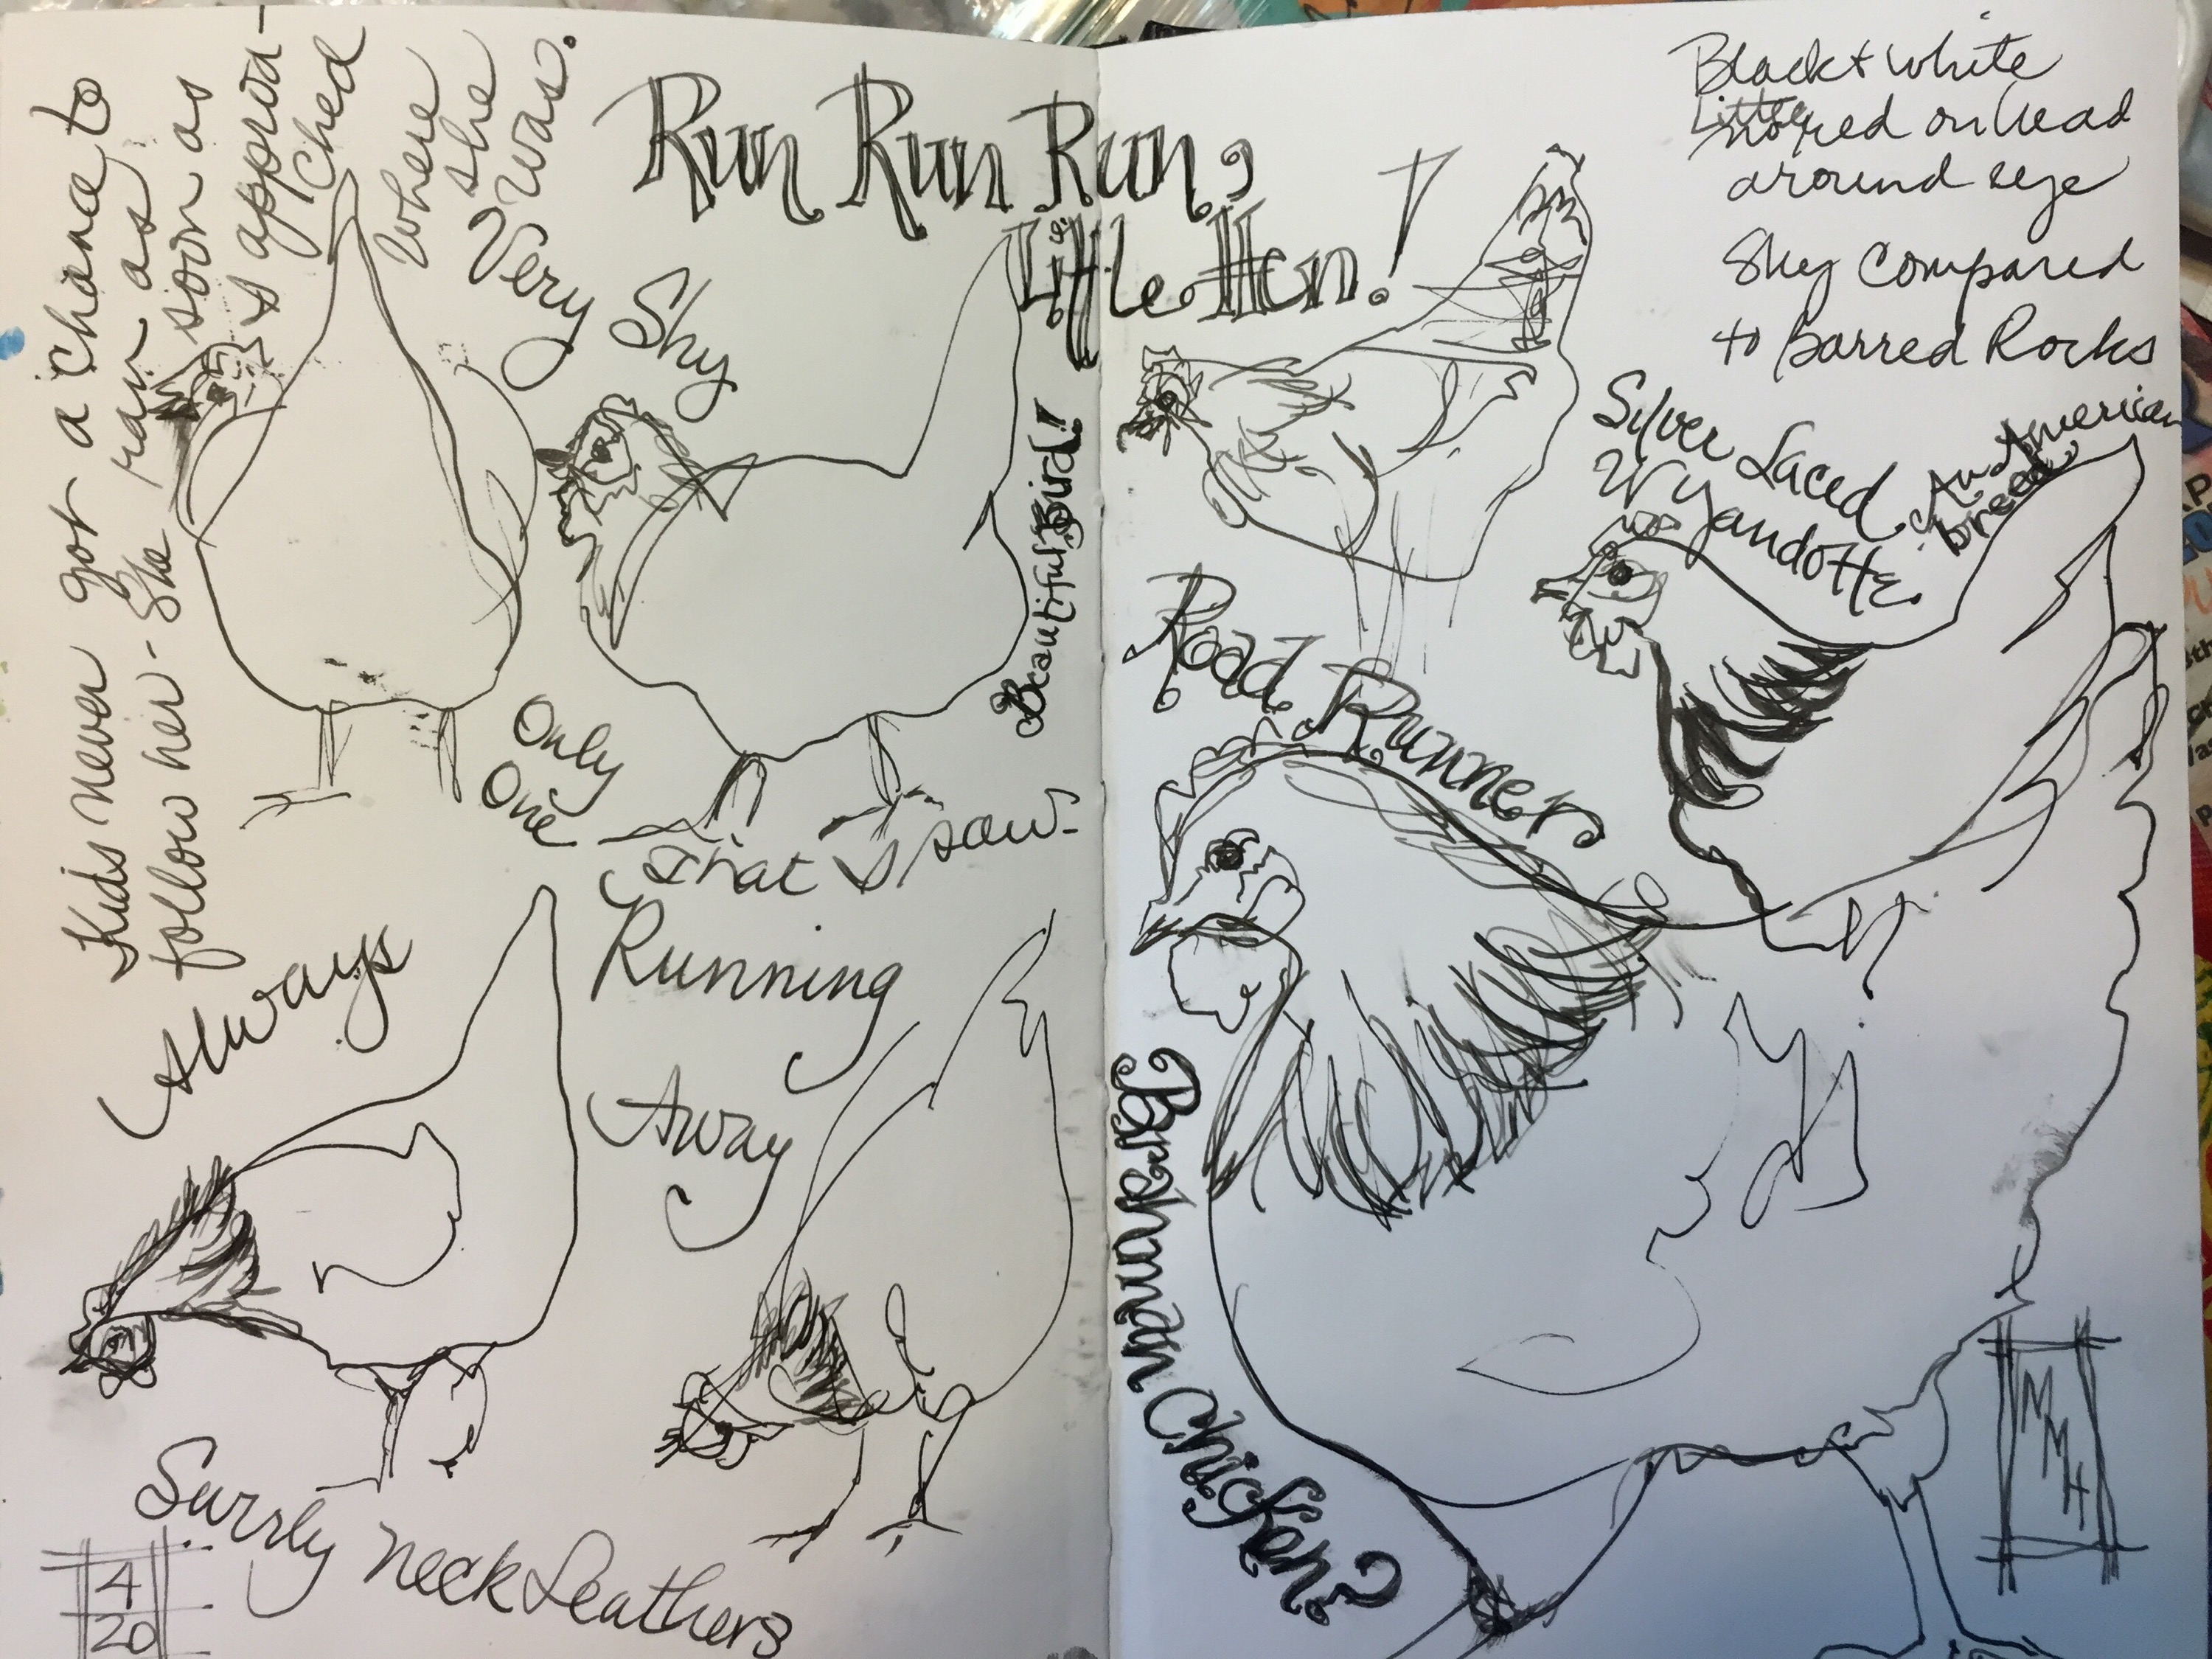 Kids never got a chance to
follow her - She ran as
soon as
I approa-
ched
where
she
was.
Very Shy
Run Run Run,
Little Hen!
Beautiful Bird!
Only
One
that I saw
Always
Running
Away
Surrly neck Leathers
4
20
Black + white
Little
no red on head
around eye
Shy compared
to barred Rocks
Silver Laced
Wyandotte
And American
breed
Road Runners
Barnyard Chicken?
MMH